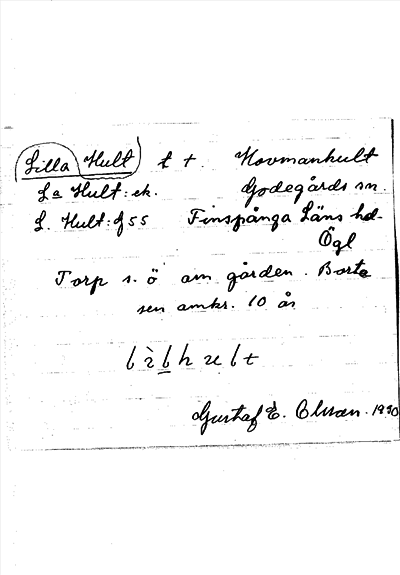 Lilla Hult t + Hovmanhult
La Hult: ek. Godegårds sn.
L. Hult: G 55 Finspånga Läns hd.
Ögl
Torp s. ö om gården. Borta
sen omkr. 10 år
Gustaf E. Olsson. 1930